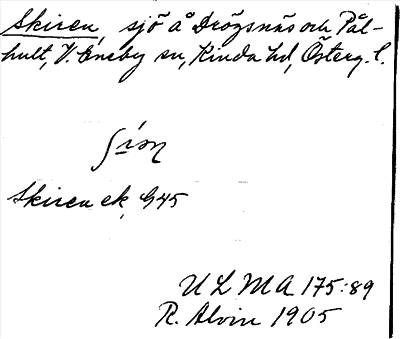 Skiren, sjö å Drögsnäs och Pål-
hult, V. Eneby sn, Kinda hd, Österg. l.
Skiren ek, G45
ULMA 175:89
R. Alvin 1905